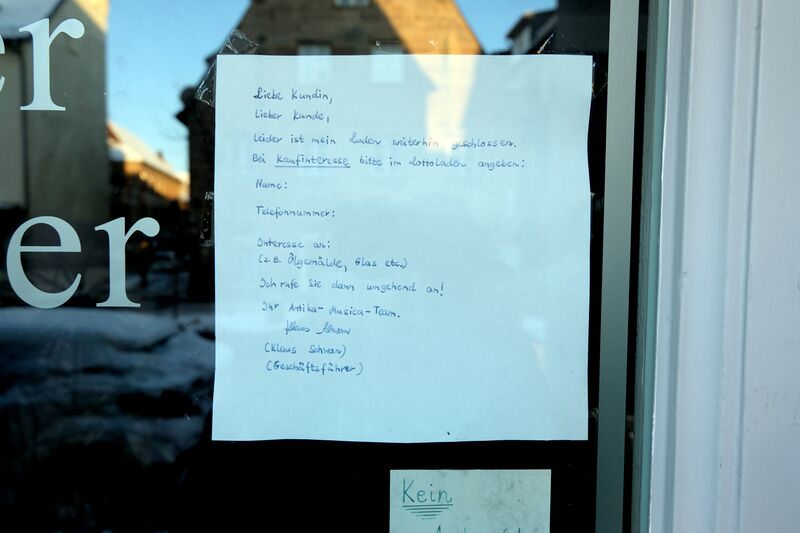 er
er
Liebe Kundin,
Lieber Kunde,
Leider ist mein Laden weiterhin geschlossen.
Bei Kaufinteresse bitte im Lottoladen angeben:
Name:
Telefonnummer:
Interesse an:
(z.B. Ölgemälde, Glas etc.)
Ich rufe Sie dann umgehend an!
Ihr Antika-Musica-Team.
Klaus Schwarz
(Klaus Schwarz)
(Geschäftsführer)
Kein